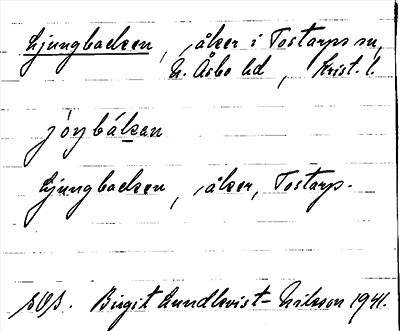 Ljungbacken, åker i Tostarps sn,
N. Åsbo hd, Krist. l.
jóŋbákan
Ljungbacken, åker, Tostarp.
Birgit Lundkvist-Nilsson 1941.